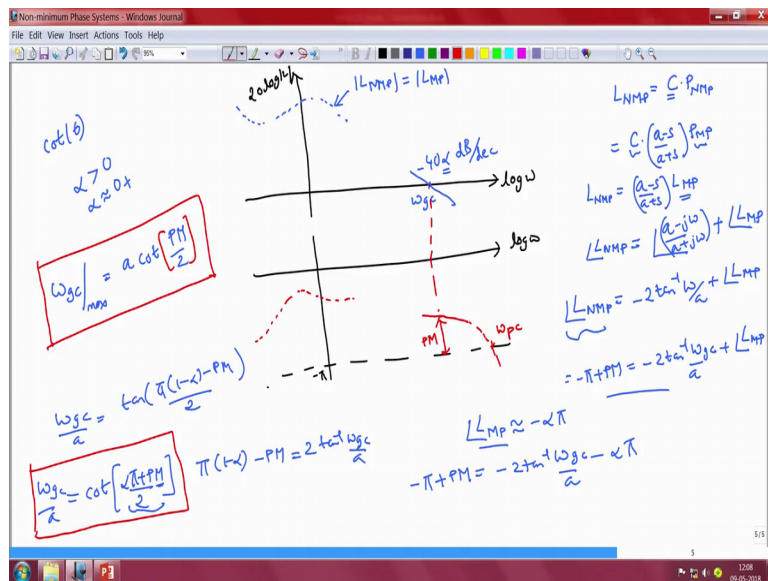 Non-minimum Phase Systems - Windows Journal
File Edit View Insert Actions Tools Help
95%
cot(θ)
α > 0
α ≈ 0+
ωgc|max = a cot(PM/2)
ωgc/a = tan(π(1-α)-PM/2)
ωgc/a = cot[απ+PM/2]
π(1-α) - PM = 2 tan⁻¹ ωgc/a
20 log|L|
|LNMP| = |LMP|
-40α dB/sec
log ω
ωgc
log ω
PM
ωpc
-π
LNMP = C·PNMP
= C·(a-s/a+s) PMP
LNMP = (a-s/a+s) LMP
∠LNMP = ∠(a-jω/a+jω) + ∠LMP
∠LNMP = -2 tan⁻¹ ω/a + ∠LMP
= -π + PM = -2 tan⁻¹ ωgc/a + ∠LMP
∠LMP ≈ -απ
-π + PM = -2 tan⁻¹ ωgc/a - απ
5/5
5
12:08
09-05-2018